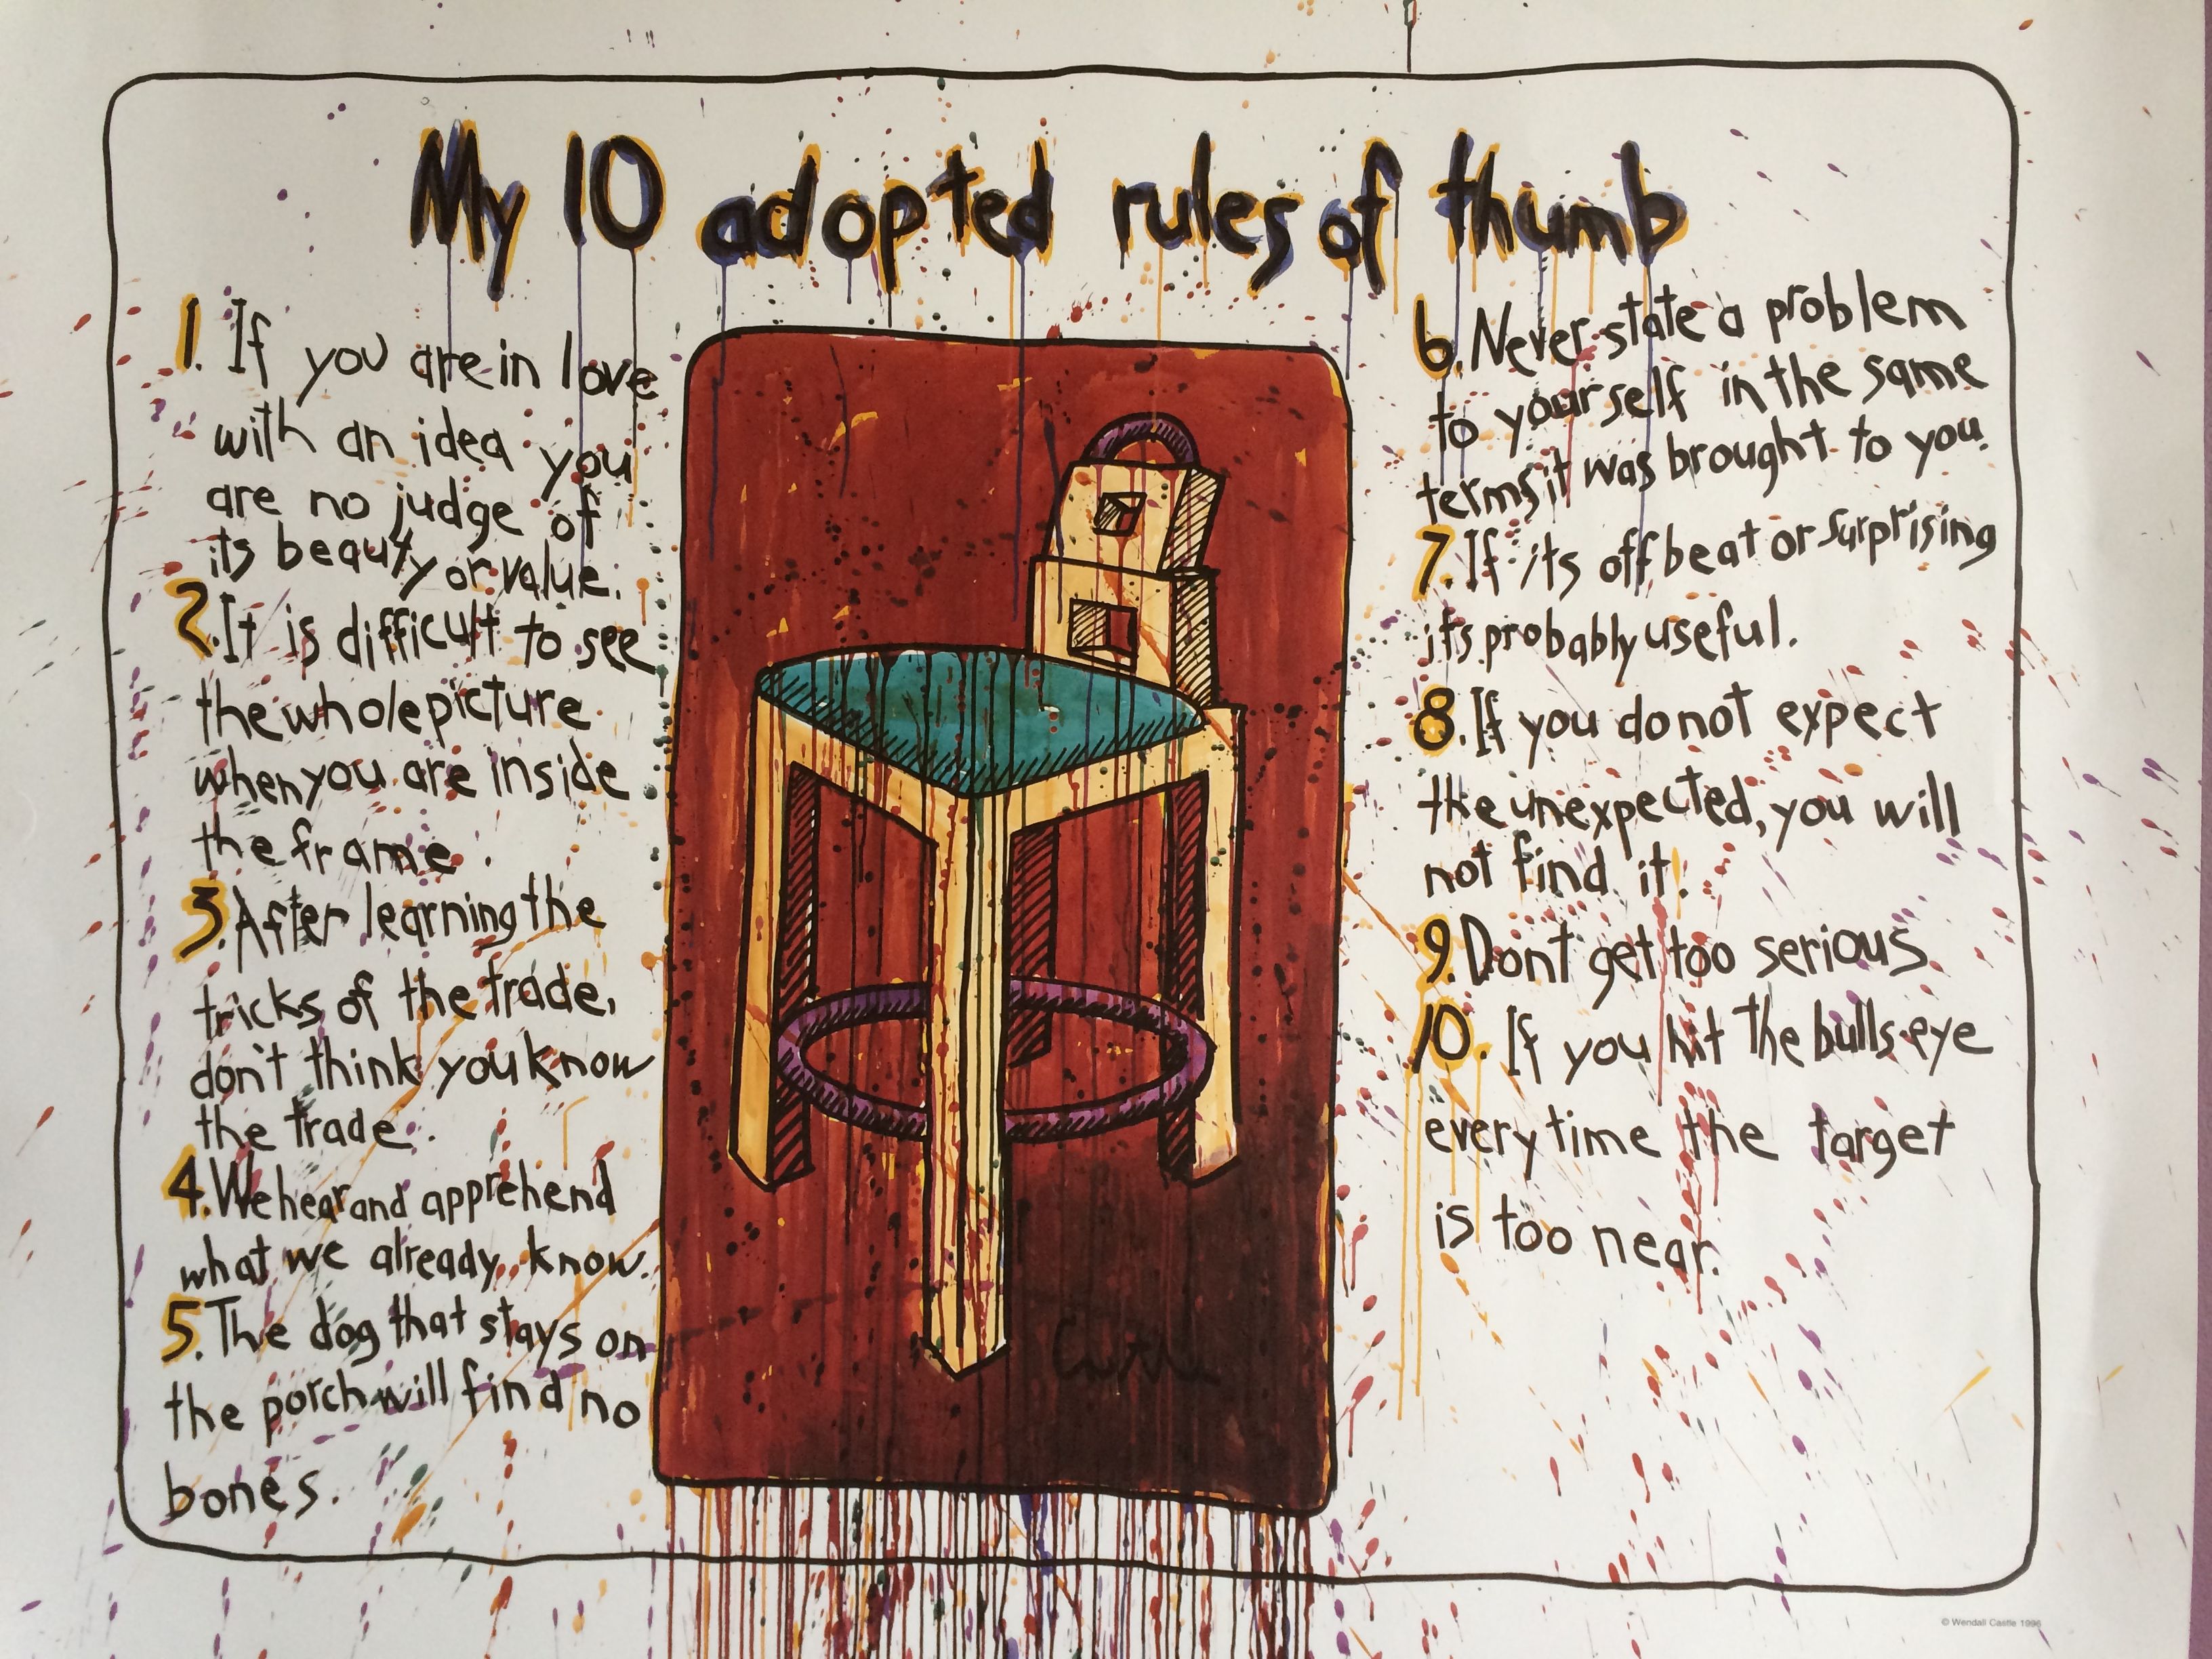 My 10 adopted rules of thumb
1. If you are in love
with an idea you
are no judge of
its beauty or value.
2. It is difficult to see
the whole picture
when you are inside
the frame.
3. After learning the
tricks of the trade,
don't think you know
the trade.
4. We hear and apprehend
what we already know.
5. The dog that stays on
the porch will find no
bones.
6. Never state a problem
to yourself in the same
terms it was brought to you.
7. If its off beat or surprising
its probably useful.
8. If you do not expect
the unexpected, you will
not find it.
9. Dont get too serious
10. If you hit the bulls-eye
every time the target
is too near.
© Wendall Castle 1996